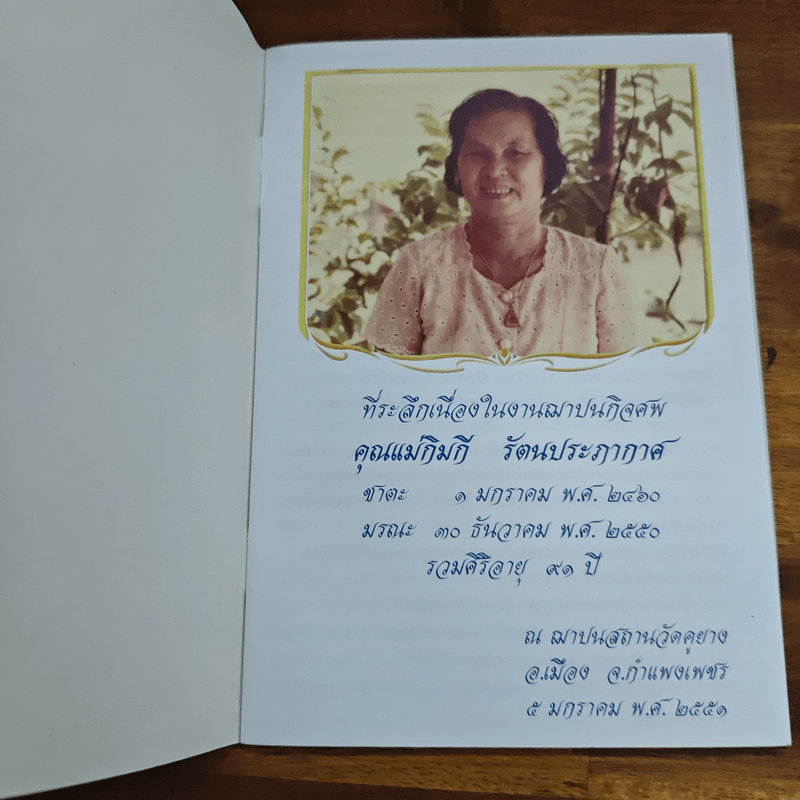 ที่ระลึกเนื่องในงานฌาปนกิจศพ
คุณแม่กิมกี รัตนประภากาศ
ชาตะ ๑ มกราคม พ.ศ. ๒๔๖๐
มรณะ ๓๐ ธันวาคม พ.ศ. ๒๕๕๐
รวมศิริอายุ ๙๑ ปี
ณ ฌาปนสถานวัดคูยาง
อ.เมือง จ.กำแพงเพชร
๕ มกราคม พ.ศ. ๒๕๕๑